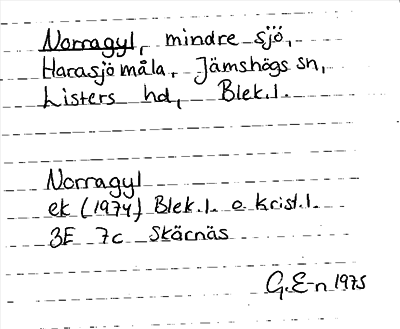 Norragyl, mindre sjö,
Harasjömåla, Jämshögs sn,
Listers hd, Blek.l.
Norragyl
ek (1974) Blek.l. o Krist.l.
3E 7c Skärnäs
G.E-n 1975